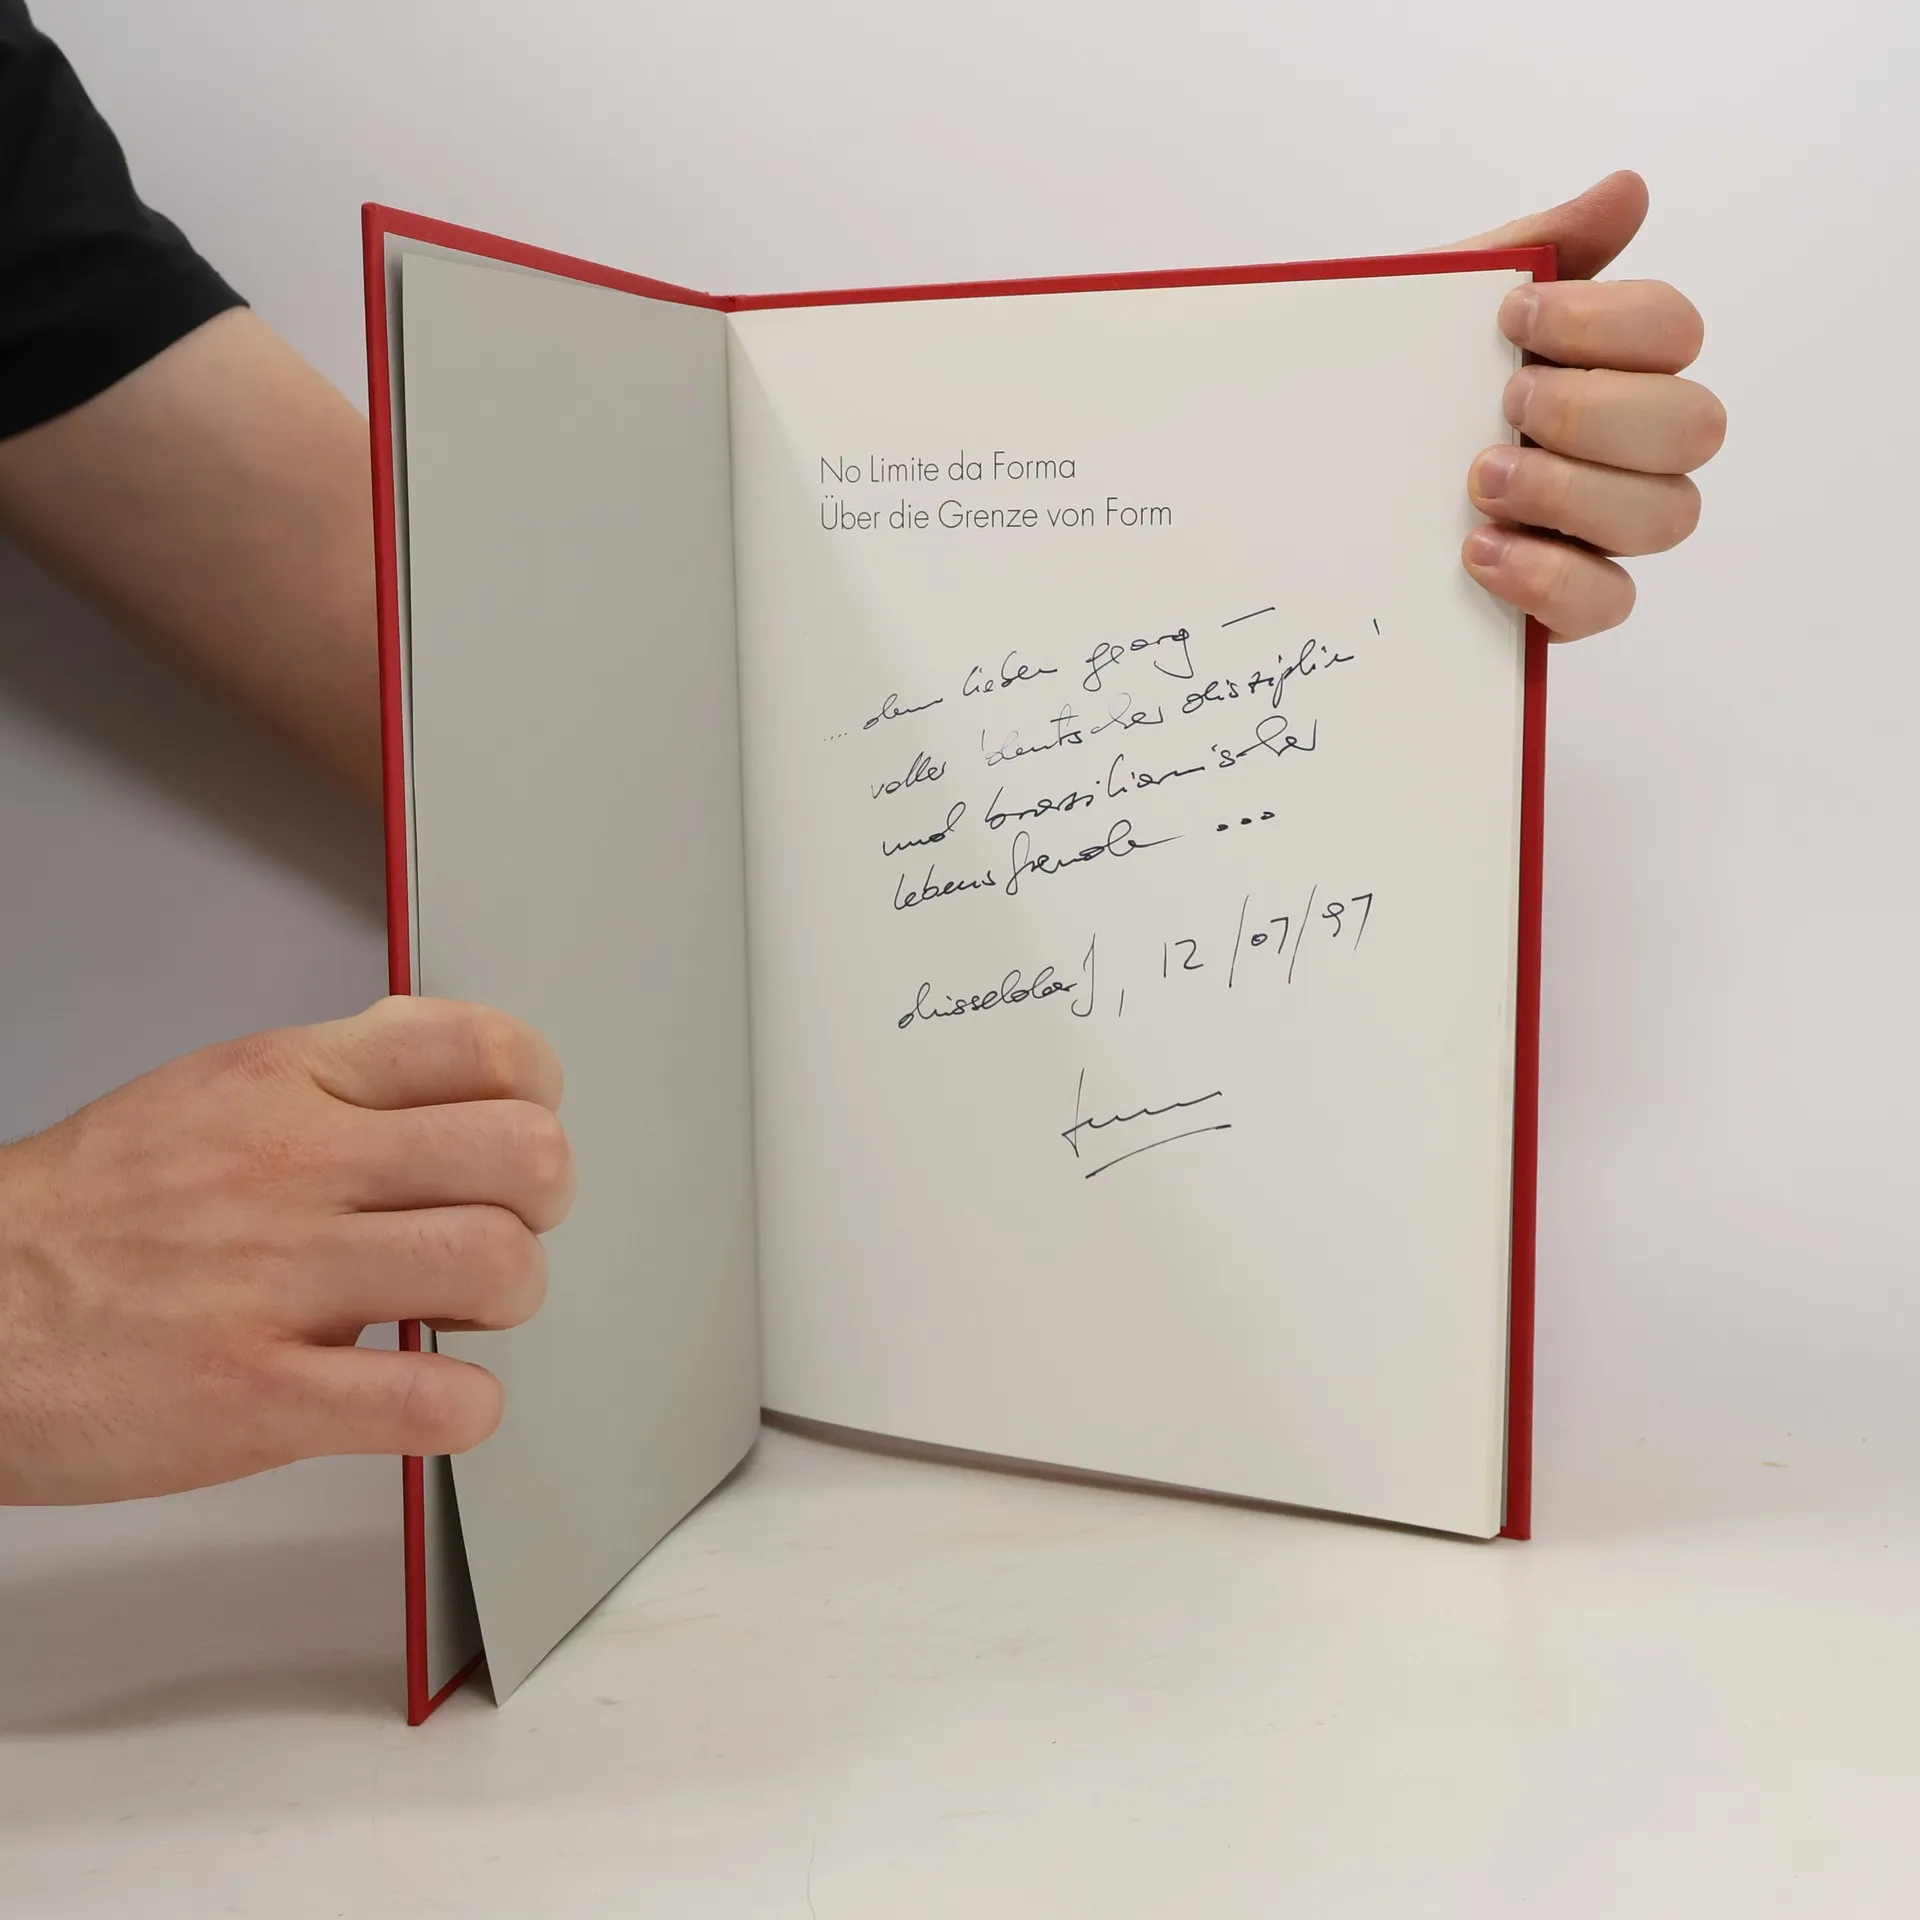 No Limite da Forma
Über die Grenze von Form
.... dem lieben georg —
voller 'deutscher disziplin'
und brasilianischer
lebensfreude ...
düsseldorf, 12/07/97